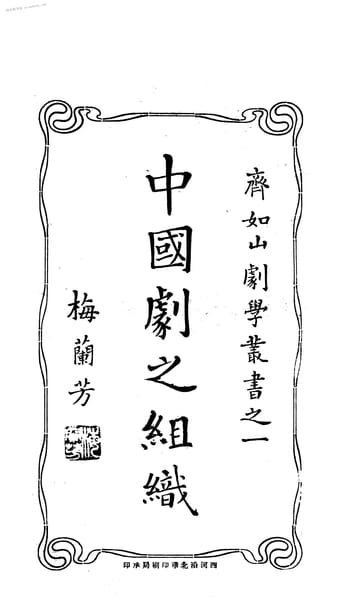 齊如山劇學叢書之一
中國劇之組織
梅蘭芳
印承局刷印華北沿河西